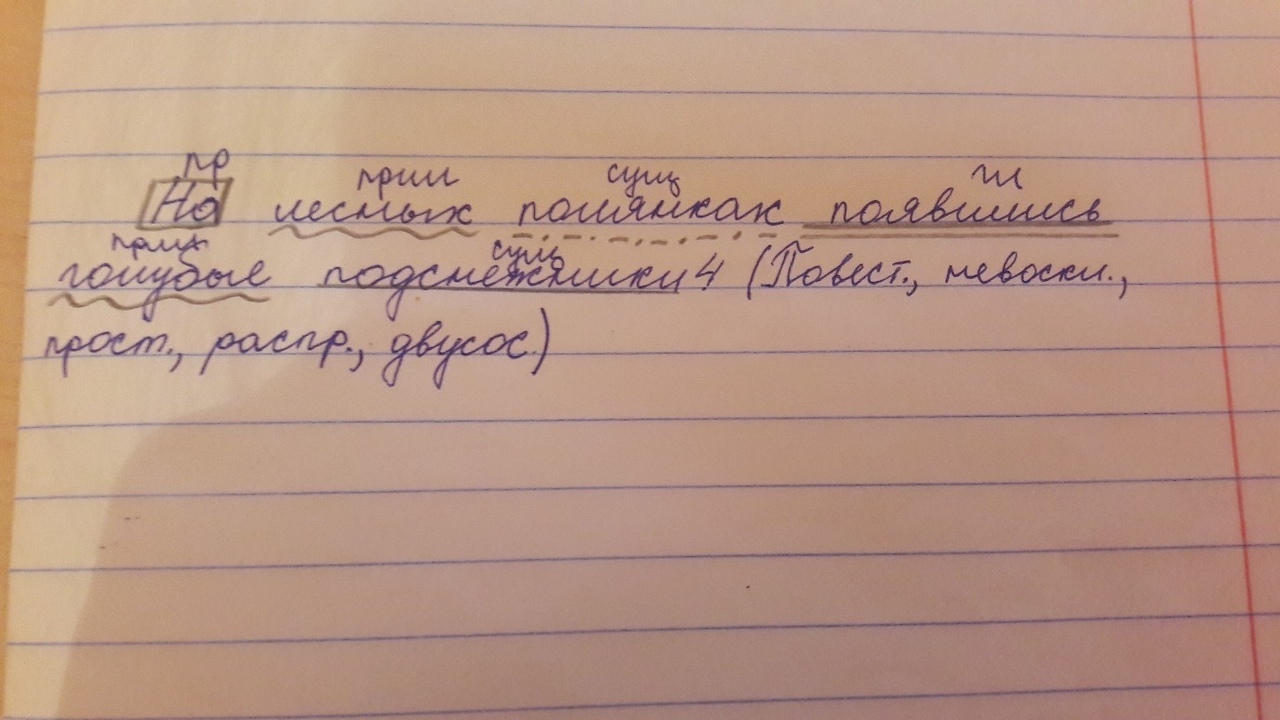 пр прил сущ гл
На лесных полянках появились
прил сущ
голубые подснежники 4 (Повест., невоскл.,
прост., распр., двусос.)